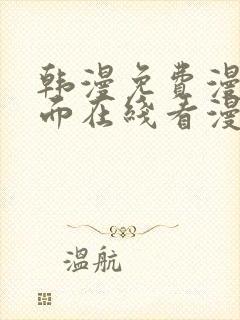 韩漫免费漫
而在线看漫
温航